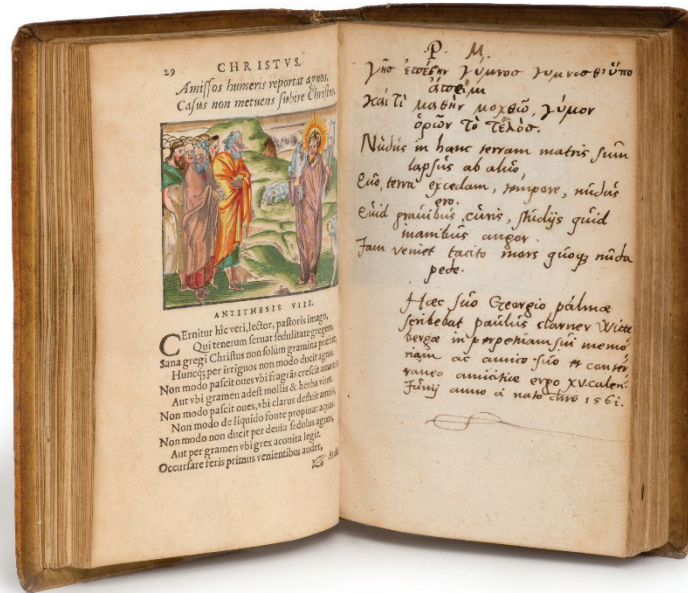 29 CHRISTVS.
Amissos humeris reportat agnos,
Casus non metuens subire Christus.
ANTITHESIS VIII.
CErnitur hîc veri, lector, pastoris imago,
Qui tenerum seruat sedulitate gregem.
Sana gregi Christus non solùm gramina præbet,
Huncq; per irriguos non modo ducit agros.
Non modo pascit oues vbi fragrãs crescit
Aut vbi gramen adest mollis & herba viret.
Non modo pascit oues, vbi clarus defluit amnis,
Non modo de liquido fonte propinat aquas.
Non modo non ducit per deuia sedulus agnos,
Aut per gramen vbi grex aconita legit.
Occursare feris primus venientibus audet,
P. M.
γῆς ἐπέβην γύμνος γυμνὸς θ' ὑπὸ
ἄπειμι
καὶ τί μάτην μοχθῶ, γύμνον
ὁρῶν τὸ τέλος.
Nudus in hanc terram matris sum
lapsus ab aluo,
Quo, terra excedam, tempore, nudus
ero.
Quid grauibus curis, studijs quid
inanibus angor.
Jam veniet tacito mors quoq; nuda
pede.
Hæc suo Georgio palmæ
scribebat paulus clarner Witte
bergæ in perpetuam sui memo
riam ac amico suo et conter
raneo amicitiæ ergo XV. calen
Junij anno a nato chro 1561.